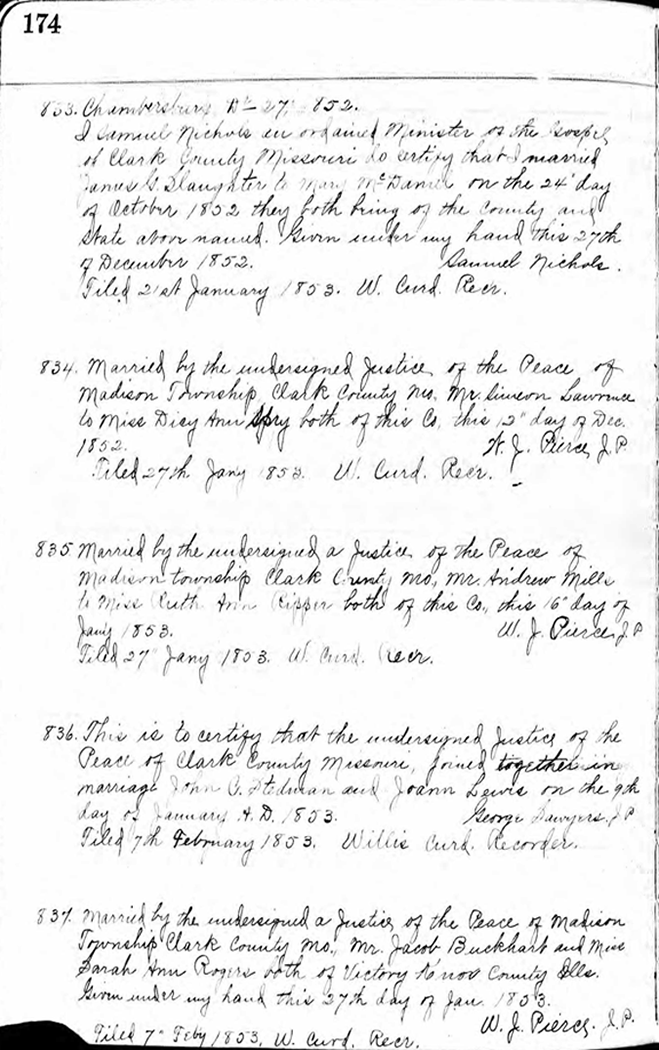 174
833. Chambersburg, Dc 27, 1852.
I Samuel Nichols an ordained Minister of the Gospel
of Clark County Missouri do certify that I married
James G. Slaughter to Mary McDaniel on the 24 day
of October 1852 they both being of the county and
State above named. Given under my hand this 27th
of December 1852. Samuel Nichols.
Filed 21st January 1853. W. Curd. Recr.
834. Married by the undersigned Justice of the Peace of
Madison Township, Clark County Mo, Mr. Simeon Lawrence
to Miss Dicy Ann Spry both of this Co, this 12" day of Dec.
1852. W. J. Pierce, J.P.
Filed 27th Jany 1853. W. Curd. Recr.
835 Married by the undersigned a Justice of the Peace of
Madison township Clark County Mo, Mr. Andrew Mills
to Miss Ruth Ann Ripper both of this Co., this 16" day of
Jany 1853. W. J. Pierce, J.P
Filed 27" Jany 1853. W. Curd. Recr.
836. This is to certify that the undersigned Justice of the
Peace of Clark County Missouri, joined together in
marriage John Stedman and Joann Lewis on the 9th
day of January A.D. 1853. George Sawyers, J.P
Filed 7th February 1853. Willis Curd. Recorder.
837. Married by the undersigned a Justice of the Peace of Madison
Township Clark County Mo., Mr. Jacob Buckhart and Miss
Sarah Ann Rogers both of Victory Knox County Ills.
Given under my hand this 27th day of Jan. 1853.
W. J. Pierce, J.P.
Filed 7" Feby 1853, W. Curd. Recr.